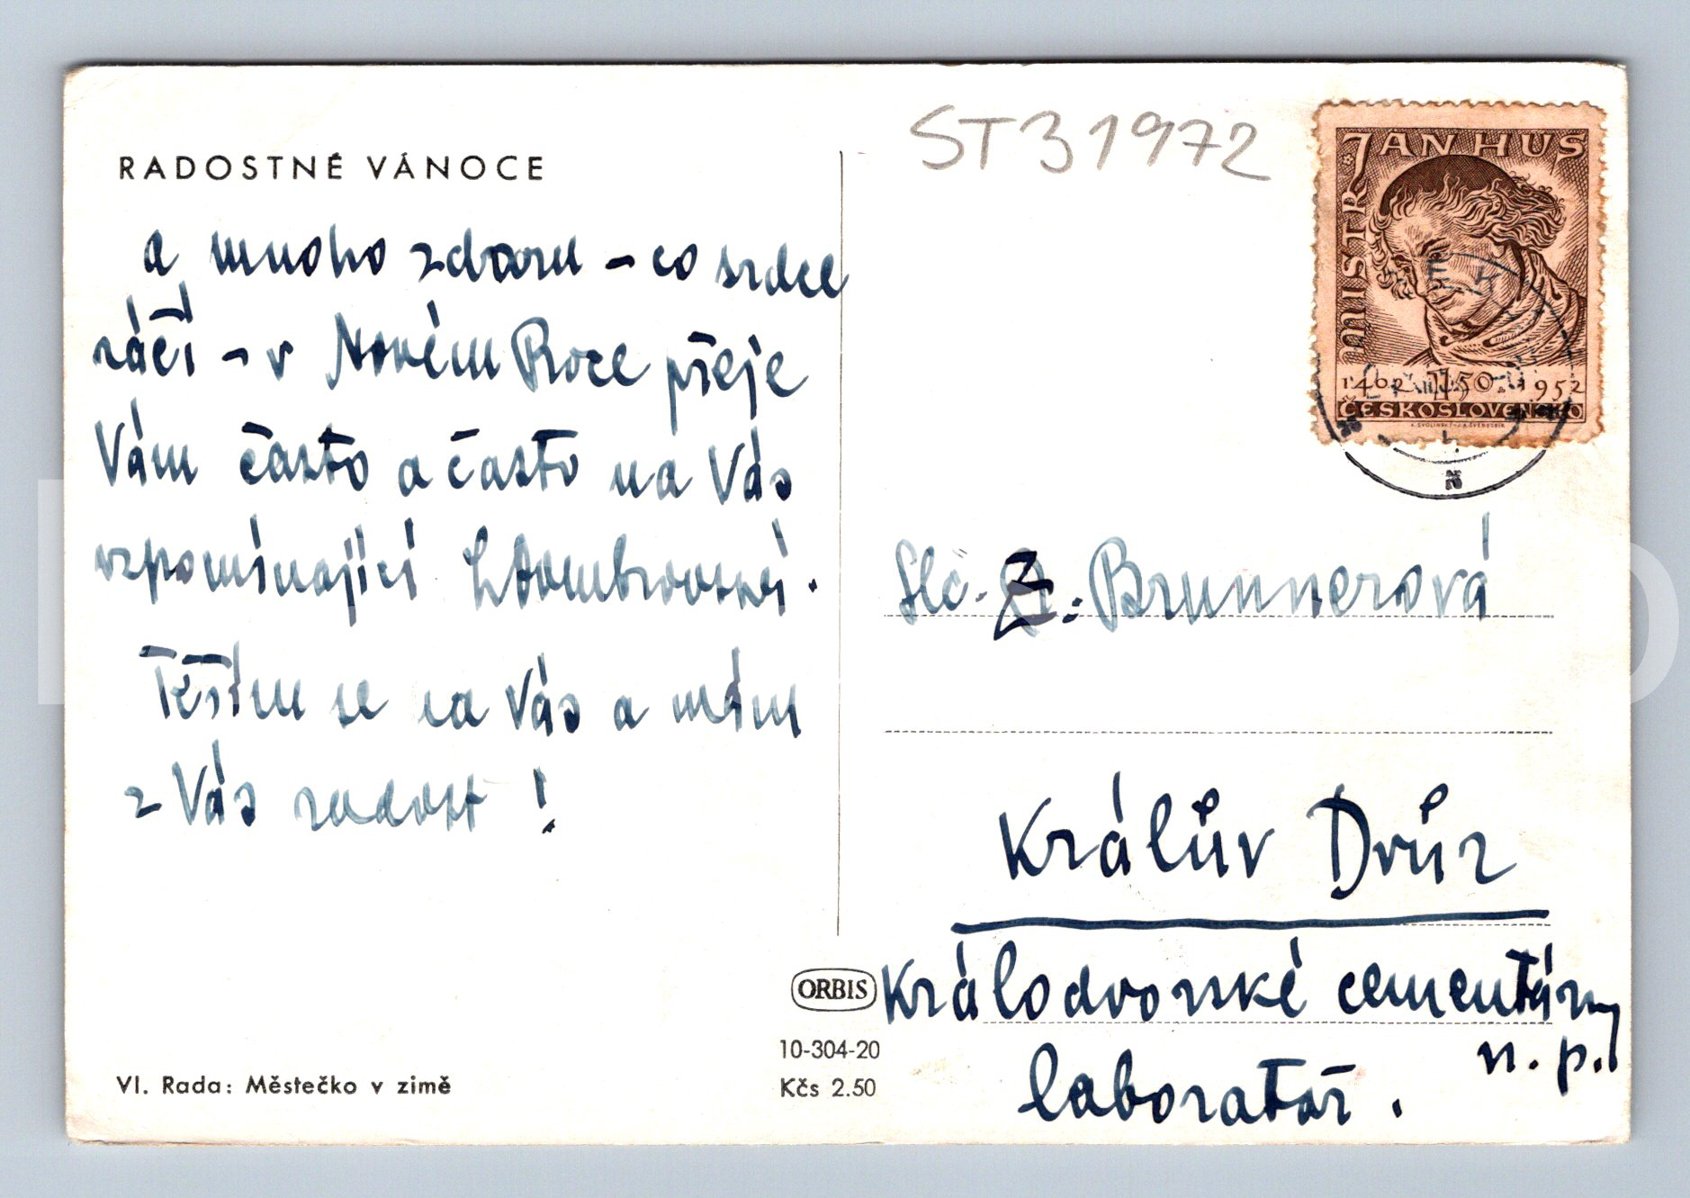 ST31972
RADOSTNÉ VÁNOCE
a mnoho zdaru - co srdce
ráčí - v Novém Roce přeje
Vám často a často na Vás
vzpomínající
Těším se na Vás a mám
z Vás radost!
MISTR JAN HUS
1402 1.50 1952
ČESKOSLOVENSKO
Slč. Z. Brunnerová
Králův Dvůr
Králodvorské cementárny
n. p.
laboratoř.
ORBIS
10-304-20
Kčs 2.50
Vl. Rada: Městečko v zimě